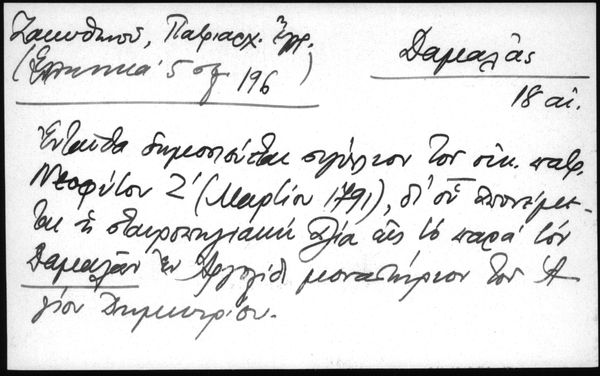 Ζακυθηνοῦ, Πατριαρχ. Ἔγγρ.
(Ἑλληνικά 5 σ. 196)
Δαμαλᾶς
18 αἰ.
Ἐνταῦθα δημοσιεύεται σιγίλλιον τοῦ οἰκ. πατρ.
Νεοφύτου Ζ' (Μαρτίου 1791), δι' οὗ ἀπονέμε-
ται ἡ σταυροπηγιακή ἀξία εἰς τό παρά τόν
Δαμαλᾶν ἐν Ἀργολίδι μοναστήριον τοῦ Ἁ-
γίου Δημητρίου.